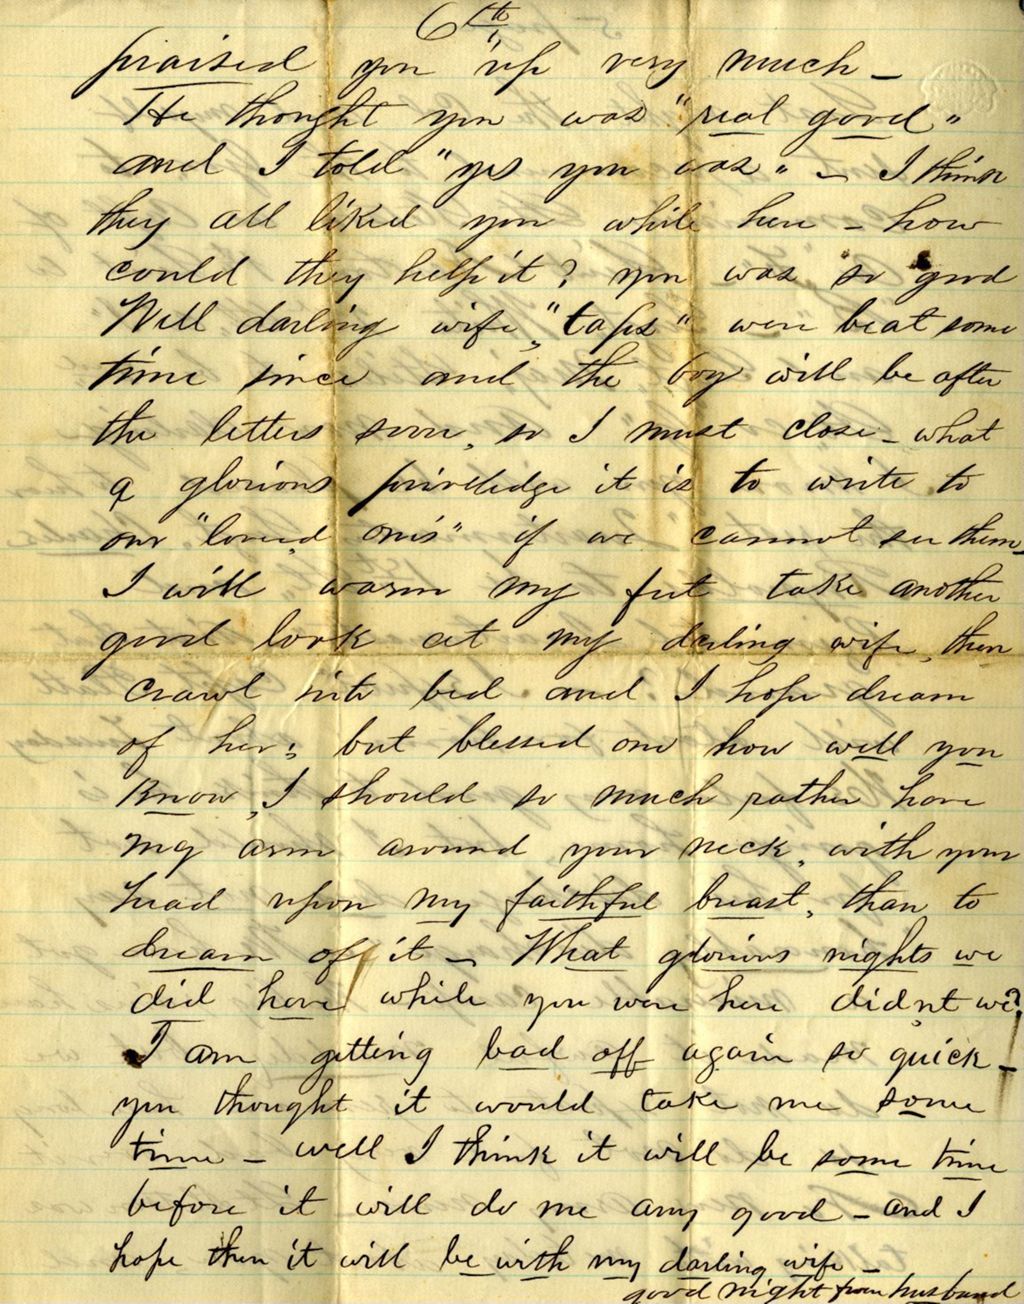 6th
praised you up very much -
He thought you was "real good"
and I told "yes you was" - I think
they all liked you while here - how
could they help it? you was so good
Well darling wife, "taps" were beat some
time since and the boy will be after
the letters soon, so I must close - what
a glorious priviledge it is to write to
our "loved ones" if we cannot see them -
I will warm my feet take another
good look at my darling wife, then
crawl into bed and I hope dream
of her; but blessed one how well you
know, I should so much rather have
my arm around your neck, with your
head upon my faithful breast, than to
dream of it - What glorious nights we
did have while you were here didnt we?
I am getting bad off again so quick -
you thought it would take me some
time - well I think it will be some time
before it will do me any good - and I
hope then it will be with my darling wife -
good night from husband